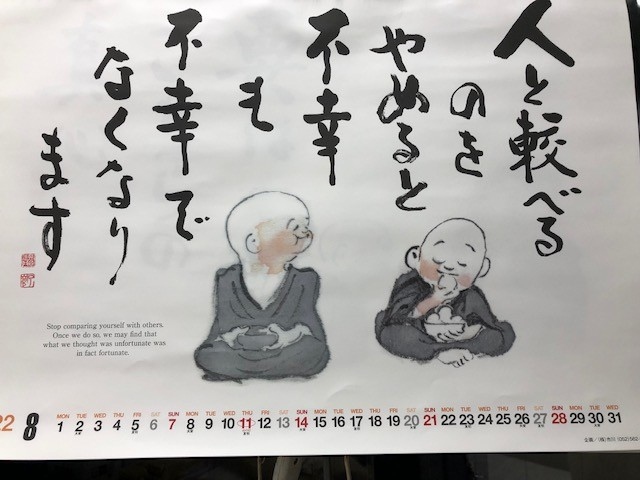 人と較べる
のを
やめると
不幸
も
不幸で
なくなり
ます
Stop comparing yourself with others.
Once we do so, we may find that
what we thought was unfortunate was
in fact fortunate.
22 8
MON TUE WED THU FRI SAT SUN MON TUE WED THU FRI SAT SUN MON TUE WED THU FRI SAT SUN MON TUE WED THU FRI SAT SUN MON TUE WED
1 2 3 4 5 6 7 8 9 10 11 12 13 14 15 16 17 18 19 20 21 22 23 24 25 26 27 28 29 30 31